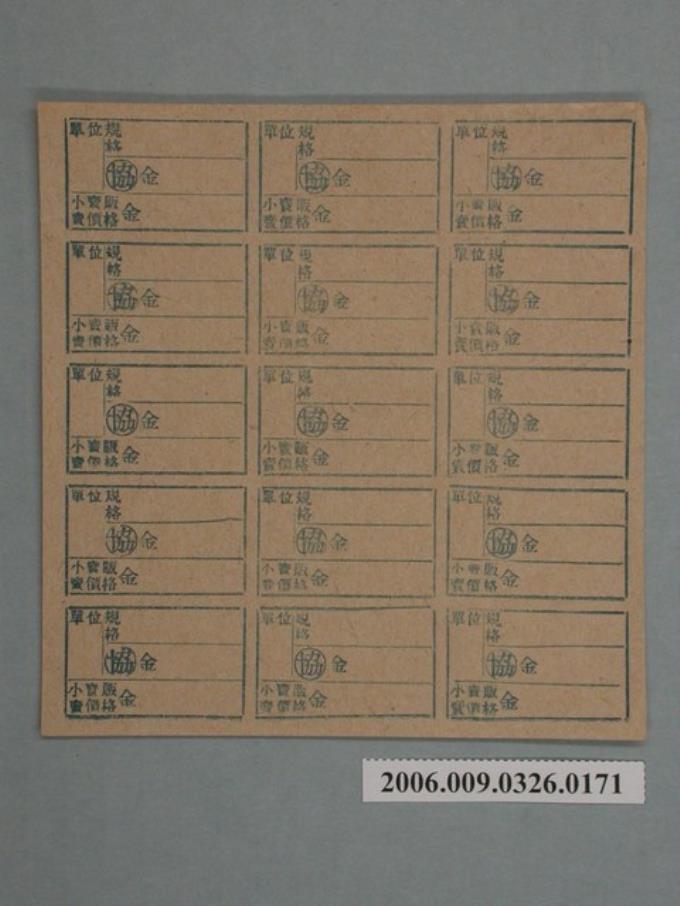 單位規
格
協 金
小賣販
賣價格 金
單位規
格
協 金
小賣販
賣價格 金
單位規
格
協 金
小賣販
賣價格 金
單位規
格
協 金
小賣販
賣價格 金
單位規
格
協 金
小賣販
賣價格 金
單位規
格
協 金
小賣販
賣價格 金
單位規
格
協 金
小賣販
賣價格 金
單位規
格
協 金
小賣販
賣價格 金
單位規
格
協 金
小賣販
賣價格 金
單位規
格
協 金
小賣販
賣價格 金
單位規
格
協 金
小賣販
賣價格 金
單位規
格
協 金
小賣販
賣價格 金
單位規
格
協 金
小賣販
賣價格 金
單位規
格
協 金
小賣販
賣價格 金
單位規
格
協 金
小賣販
賣價格 金
2006.009.0326.0171